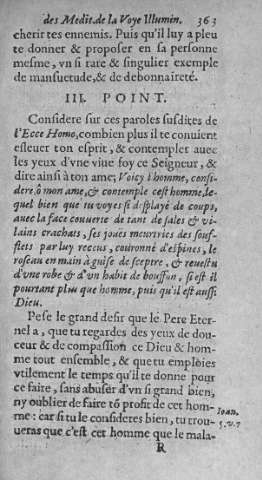 des Medit. de la Voye Illumin. 363
cherir tes ennemis. Puis qu'il luy a pleu
te donner & proposer en sa personne
mesme, vn si rare & singulier exemple
de mansuetude, & de debonnaireté.
III. POINT.
Considere sur ces paroles susdites de
l'Ecce Homo, combien plus il te conuient
esleuer ton esprit, & contempler auec
les yeux d'vne viue foy ce Seigneur, &
dire ainsi à ton ame; Voicy l'homme, consi-
dere, ô mon ame, & contemple cest homme, le-
quel bien que tu voyes si desplayé de coups,
auec la face couuerte de tant de sales & vi-
lains crachats, ses joües meurtries des souf-
flets par luy receus, couronné d'espines, le
roseau en main à guise de sceptre, & reuestu
d'vne robe & d'vn habit de bouffon, si est il
pourtant plus que homme, puis qu'il est aussi
Dieu.
Pese le grand desir que le Pere Eter-
nel a, que tu regardes des yeux de dou-
ceur & de compassion ce Dieu & hom-
me tout ensemble, & que tu emploies
vtilement le temps qu'il te donne pour
ce faire, sans abuser d'vn si grand bien,
ny oublier de faire tō profit de cet hom-
me : car si tu le consideres bien, tu trou-
Ioan.
5.v.7
ueras que c'est cet homme que le mala-
R